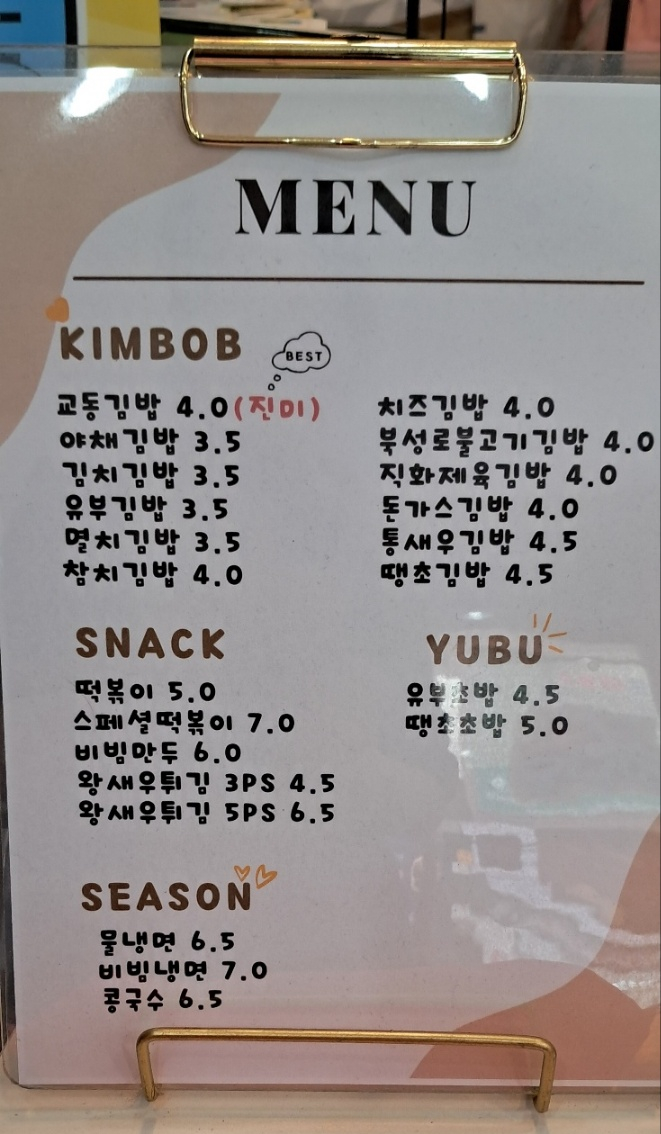 MENU
KIMBOB
BEST
교동김밥 4.0(진미)
야채김밥 3.5
김치김밥 3.5
유부김밥 3.5
멸치김밥 3.5
참치김밥 4.0
치즈김밥 4.0
북성로불고기김밥 4.0
직화제육김밥 4.0
돈가스김밥 4.0
통새우김밥 4.5
땡초김밥 4.5
SNACK
떡볶이 5.0
스페셜떡볶이 7.0
비빔만두 6.0
왕새우튀김 3PS 4.5
왕새우튀김 5PS 6.5
YUBU
유부초밥 4.5
땡초초밥 5.0
SEASON
물냉면 6.5
비빔냉면 7.0
콩국수 6.5